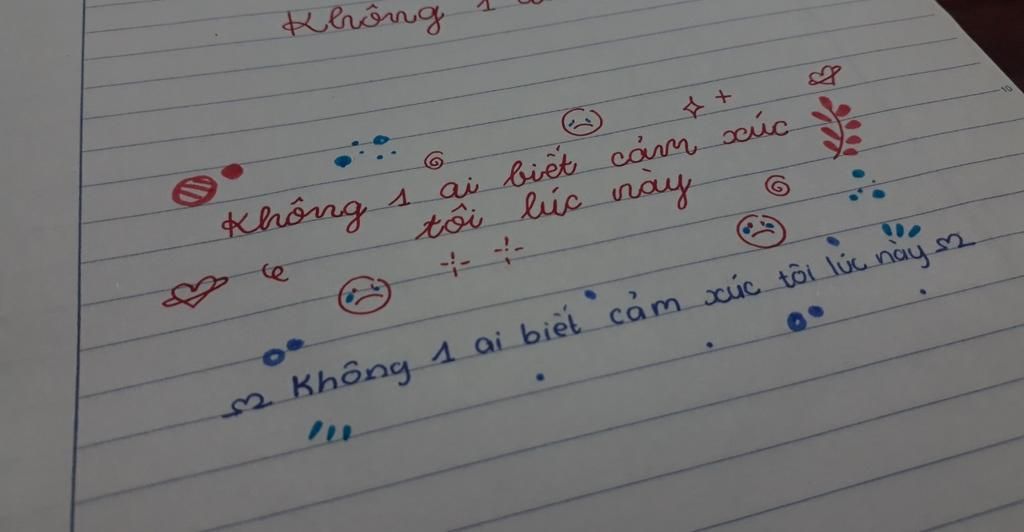 Không 1
Không 1 ai biết cảm xúc
tôi lúc này
Không 1 ai biết cảm xúc tôi lúc này